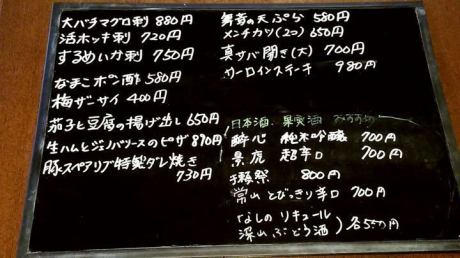 大バチマグロ刺 880円
活ホッキ刺 720円
するめいか刺 750円
なまこポン酢 580円
梅ザーサイ 400円
茄子と豆腐の揚げ出し 650円
生ハムとジェノバソースのピザ 890円
豚スペアリブ特製ダレ焼き
730円
舞茸の天ぷら 580円
メンチカツ(2コ) 650円
真サバ開き(大) 700円
サーロインステーキ 980円
日本酒、果実酒 おすすめ
酔心 純米吟醸 700円
景虎 超辛口 700円
獺祭 800円
常山 とびっきり辛口 700円
なしのリキュール
深山ぶどう酒 〉各550円